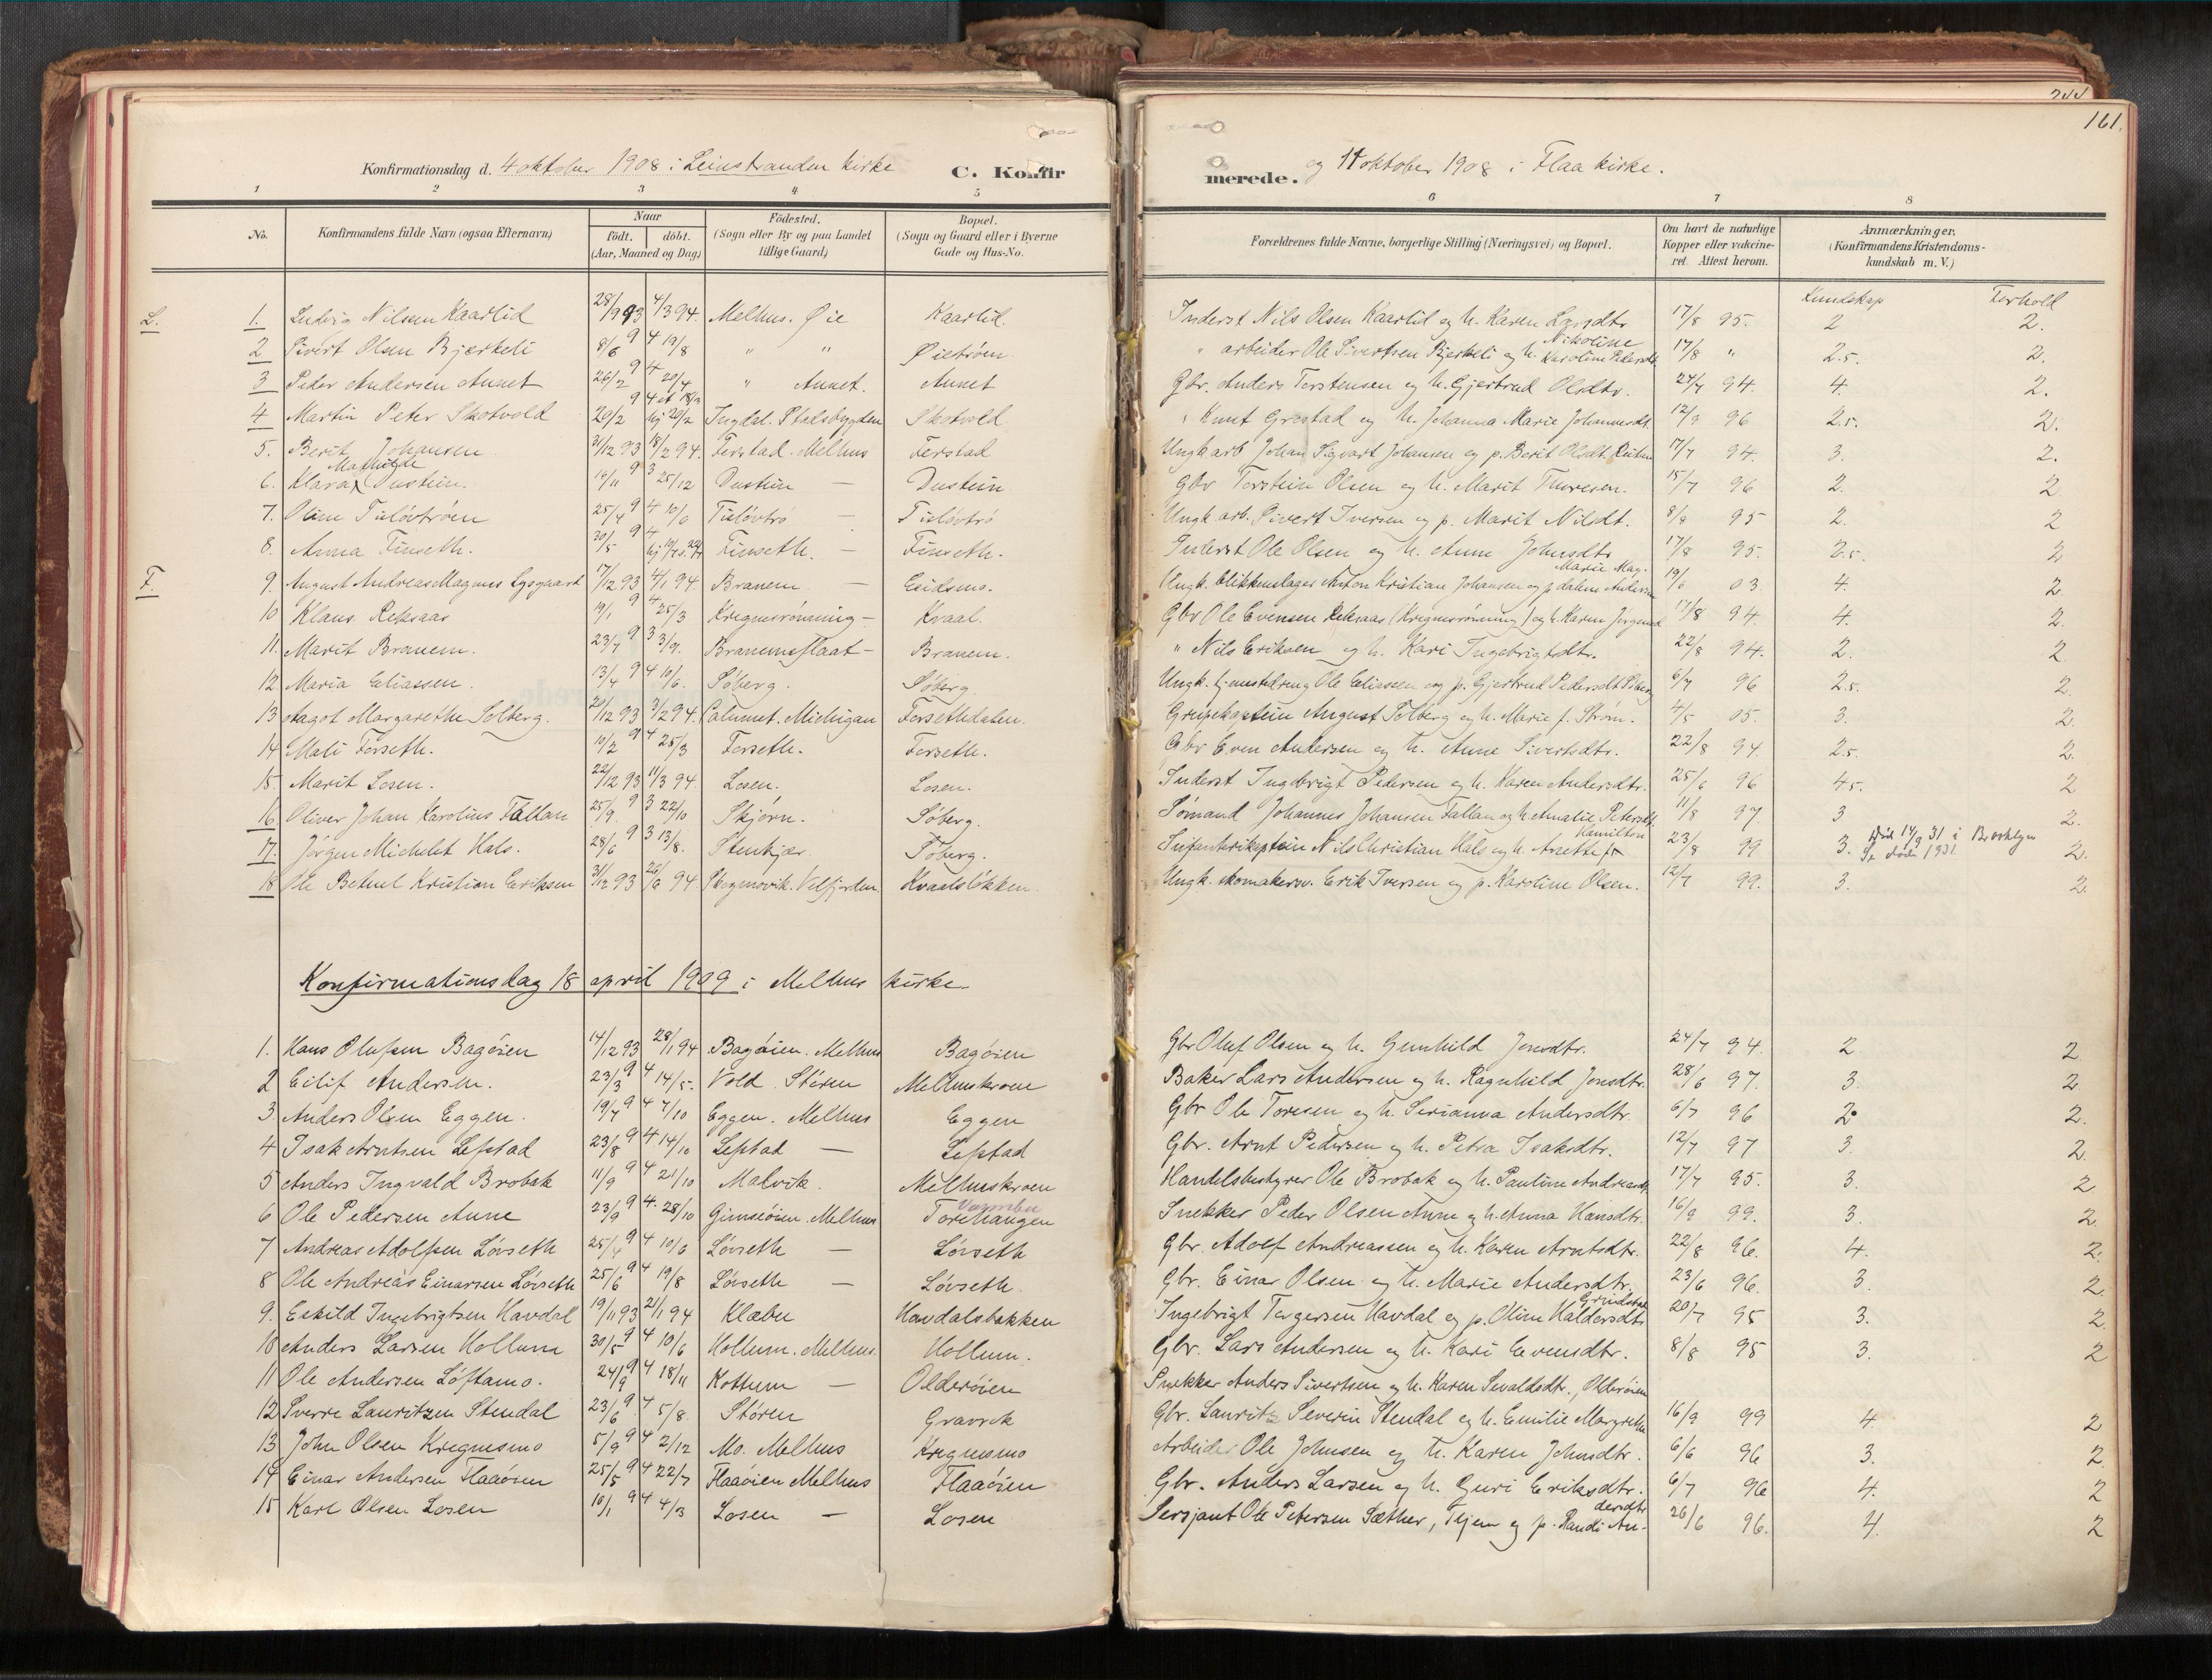 244
161.
Konfirmationsdag d. 4 oktober 1908 i Leinstranden kirke C. Konfirmerede. og 11 oktober 1908 i Flaa kirke.
1 2 3 4 5 6 7 8
No. Konfirmandens fulde Navn (ogsaa Efternavn) Naar födt. döbt. (Aar, Maaned og Dag) Födested. (Sogn eller By og paa Landet tillige Gaard) Bopæl. (Sogn og Gaard eller i Byerne Gade og Hus-No. Forældrenes fulde Navne, borgerlige Stilling (Næringsvei) og Bopæl. Om havt de naturlige Kopper eller vakcineret. Attest herom. Anmærkninger. (Konfirmandens Kristendomskundskab m. V.)
Kundskap Forhold
L. 1. Ludvig Nilsen Kaarlid 28/9 93 4/3 94. Melhus. Øie Kaarlid. Inderst Nils Olsen Kaarlid og h. Karen Larsdtr 17/8 95. 2 2.
2 Sivert Olsen Bjerkeli 8/6 94 19/8 " " Øietrøen " arbeider Ole Sivertsen Bjerkeli og h. Nikoline Karoline Pedersdt. 17/8 " 2.5. 2.
3 Peder Andersen Aunet 26/2 94 20/4 " Aunet. Aunet Gbr. Anders Torstensen og h. Gjertrud Olsdtr. 24/7 94. 4. 2.
4 Martin Peter Skotvold 20/2 94 hj 20/2 Ingdal. Stalsbygden Skotvold " Knut Grestad og h. Johanna Marie Johannesdt. 12/9 96 2.5. 2.
5. Berit Johansen 31/12 93 18/2 94. Ferstad. Melhus Ferstad Ungk. arb Johan Sigvart Johansen og p. Berit Olsdt. 17/7 94. 3. 2.
6. Klara Mathilde Dustein. 19/11 93 25/12 Dustein — Dustein Gbr Torstein Olsen og h. Marit Thoresen. 15/7 96 2. 2
7. Oline Tislövtröen 25/4 94 10/6 Tislövtrö — Tislövtrö Ungk. arb. Sivert Iversen og p. Marit Nilsdt. 8/8 95 2. 2
8. Anna Finseth. 20/5 94 Finseth. — Finseth. Inderst Ole Olsen og h. Anne Johnsdtr 17/8 95. 2.5. 2
F. 9. August Andreas Magnus Lysgaard 17/12 93 4/1 94. Branem — Eidsmo. Ungk. blikkenslager Anton Kristian Johansen og p. Marie Magdalene Andersen 19/6 03 4. 2
10 Klaus Reksaas 19/1 94 25/3 Kregnesrönning — Kvaal. Gbr Ole Evensen Reksaas (Kregnesrönning) og h. Karen Jörgensd 17/8 94. 4. 2.
11. Marit Branem. 23/7 93 3/9. Branemsflaat — Branem. " Nils Eriksen og h. Kari Ingebrigtsdtr. 22/8 94. 2. 2
12. Maria Eliassen. 13/4 94 10/6. Söberg. Söberg. Ungk. tjenestedreng Ole Eliassen og p. Gjertrud Pedersdt Söberg 6/7 96 2.5. 2.
13 Aagot Margarethe Solberg. 20/12 93 3/2 94. Calumet. Michigan Forsethdalen. Grubekaptein August Solberg og h. Marie f. Strøm. 4/5 05. 3. 2.
14 Mali Forseth. 10/2 94 25/3 Forseth. Forseth. Gbr Even Andersen og h. Anne Sivertsdtr. 22/8 94 2.5. 2.
15. Marit Losen. 22/12 93 11/3 94. Losen. Losen. Inderst Ingebrigt Pedersen og h. Karen Andersdtr. 25/6 96 4.5. 2
16. Oliver Johan Karolius Fallan 25/9. 93 22/10 Skjörn. Söberg. Sömand Johannes Johansen Fallan og h. Amalie Petersdt. 11/8 97 3 2.
17. Jörgen Michelet Hals. 28/6 93 13/8. Stenkjær. Söberg. Infanterikaptein Nils Christian Hals og h. Anette f. Hamilton 23/8 99 3. Död 14/9 31 i Brooklyn Se döde 1931. 2.
18 Ole Betuel Kristian Eriksen 31/12 93 26/6 94. Velfjorden. Kvaalslökken Ungk. skomakersv. Erik Iversen og p. Karoline Olsen. 12/7 99. 3. 2.
Konfirmationsdag 18 april 1909 i Melhus kirke.
1. Hans Olufsen Bagöien 14/12 93 28/1 94 Bagöien. Melhus Bagöien Gbr Oluf Olsen og h. Gunhild Jonsdtr. 24/7 94. 2 2.
2 Eilif Andersen. 23/3 94 14/5. Vold. Stören Melhuskroen Baker Lars Andersen og h. Ragnhild Jonsdtr. 28/6 97. 3. 2
3 Anders Olsen Eggen. 19/7 94 7/10 Eggen. Melhus Eggen Gbr Ole Toresen og h. Serianna Andersdtr. 6/7 96 2. 2.
4 Isak Arntsen Lefstad 23/8 94 14/10 Lefstad — Lefstad Gbr. Arnt Pedersen og h. Petra Isaksdtr. 12/7 97 3. 2.
5 Anders Ingvald Brobak 11/9 94 21/10 Malvik. Melhuskroen Handelsbestyrer Ole Brobak og h. Pauline Andreasdt. 17/7 95. 3. 2
6 Ole Pedersen Aune 23/9 94. 28/10 Gimseöien. Melhus Varmbu Torehaugen Snekker Peder Olsen Aune og h. Anna Hansdtr. 16/9 99. 3. 2.
7 Andreas Adolfsen Lövseth 25/4 94 10/6 Lövseth — Lövseth Gbr. Adolf Andreassen og h. Karen Arntsdtr. 22/8 96. 4. 2.
8 Ole Andreas Einarsen Lövseth 25/6 94 19/8 Lövseth — Lövseth. Gbr. Einar Olsen og h. Marie Andersdtr. 23/6 96. 3. 2
9. Eskild Ingebrigtsen Havdal 19/11 93 21/1 94 Klæbu Havdalsbakken Ingebrigt Torgersen Havdal og p. Oline Haldorsdtr 20/7 95 3. 2
10 Anders Larsen Hollum 30/5 94 10/6 Hollum. Melhus. Hollum. Gbr. Lars Andersen og h. Kari Evensdtr. 8/8 95 3. 2
11 Ole Andersen Löftamo. 24/9 94 18/11 Kottum — Olderöien Snekker Anders Sivertsen og h. Karen Sevaldsdtr., Olderöien
12 Sverre Lauritzen Stendal 23/6 94 5/8. Stören Gravrok Gbr. Lauritz Severin Stendal og h. Emilie Margrethe 16/9 99 4. 2
13 John Olsen Kregnesmo 5/9 94 2/12 Mo. Melhus Kregnesmo Arbeider Ole Johnsen og h. Karen Johnsdtr. 6/6 96 3. 2
14 Einar Andersen Flaaöien 25/5 94 22/7 Flaaöien Melhus Flaaöien Gbr. Anders Larsen og h. Guri Eriksdtr. 6/7 96 4. 2
15 Karl Olsen Losen 10/1 94 4/3 Losen — Losen Sersjant Ole Petersen Sæther, Tiller og p. Randi Andersdtr 26/6 96. 4. 2